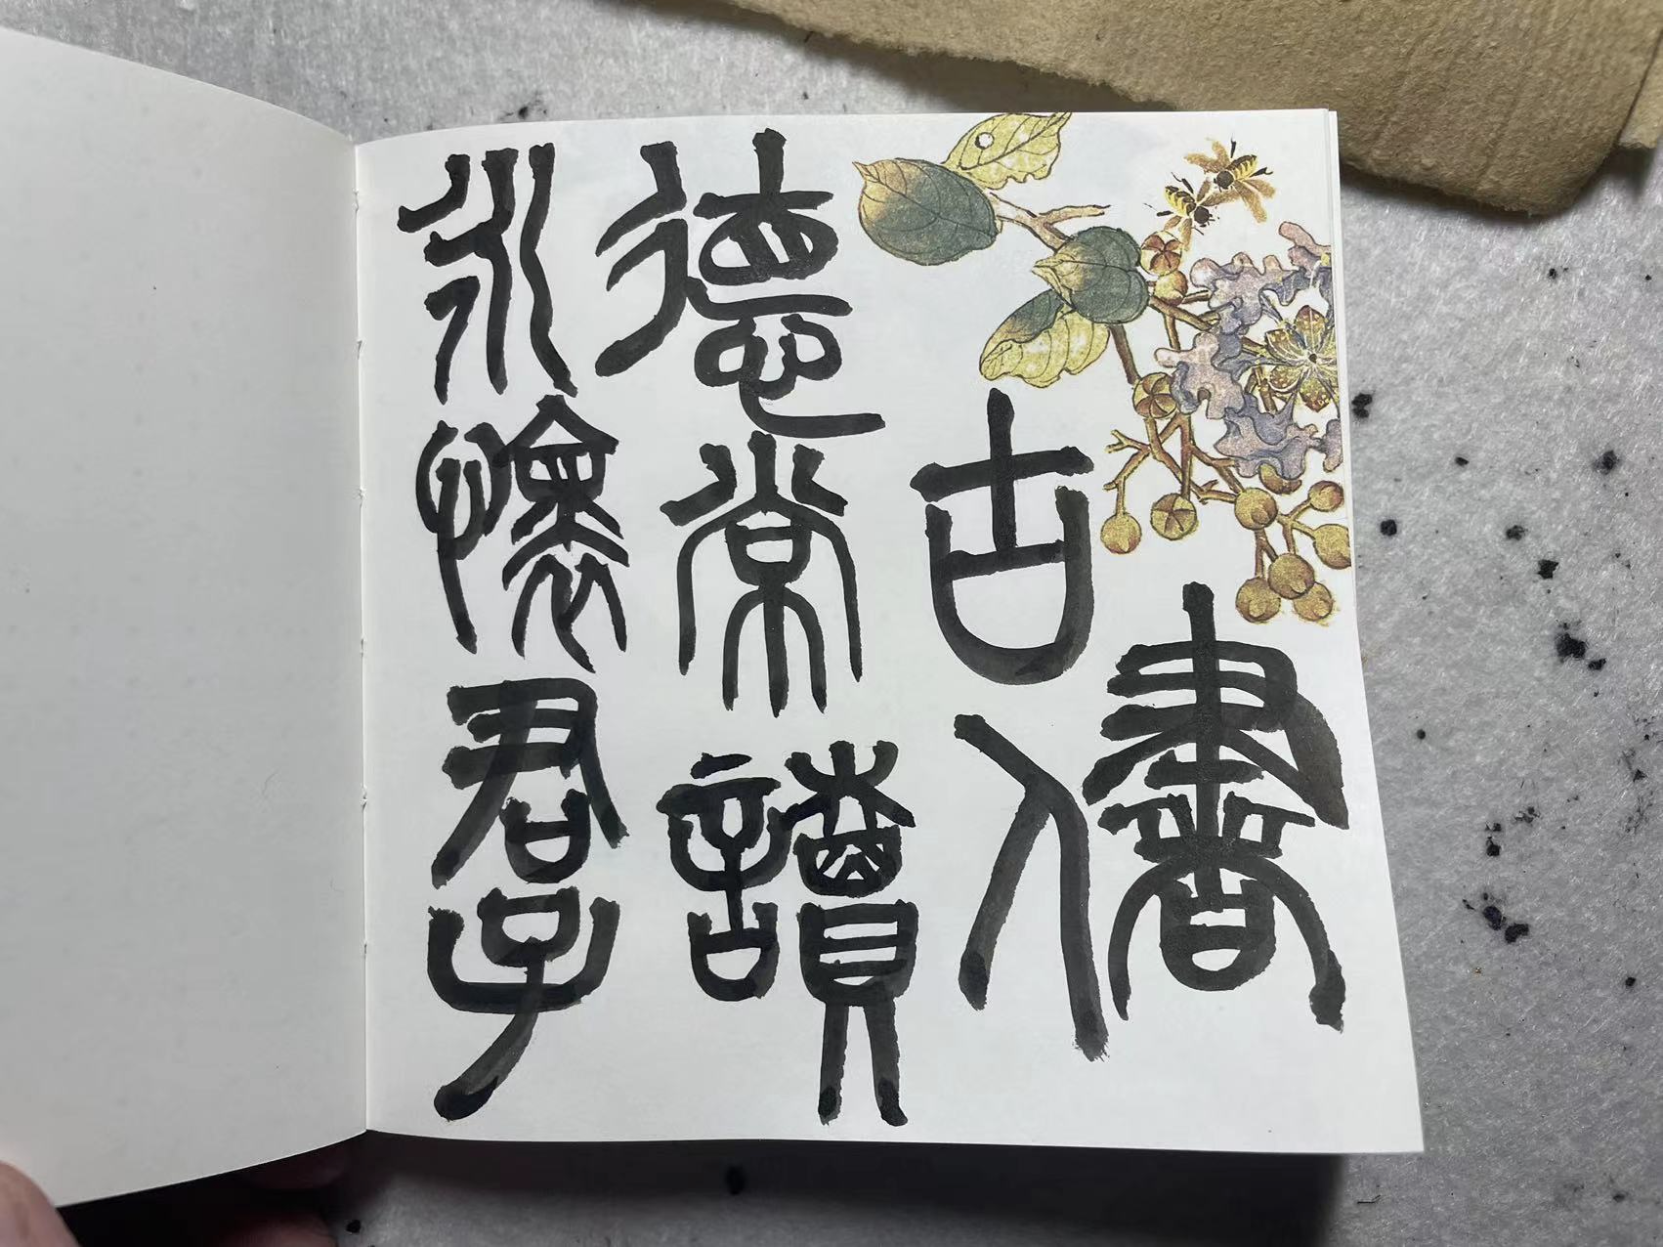 永懷君子
德常讀
古人
書